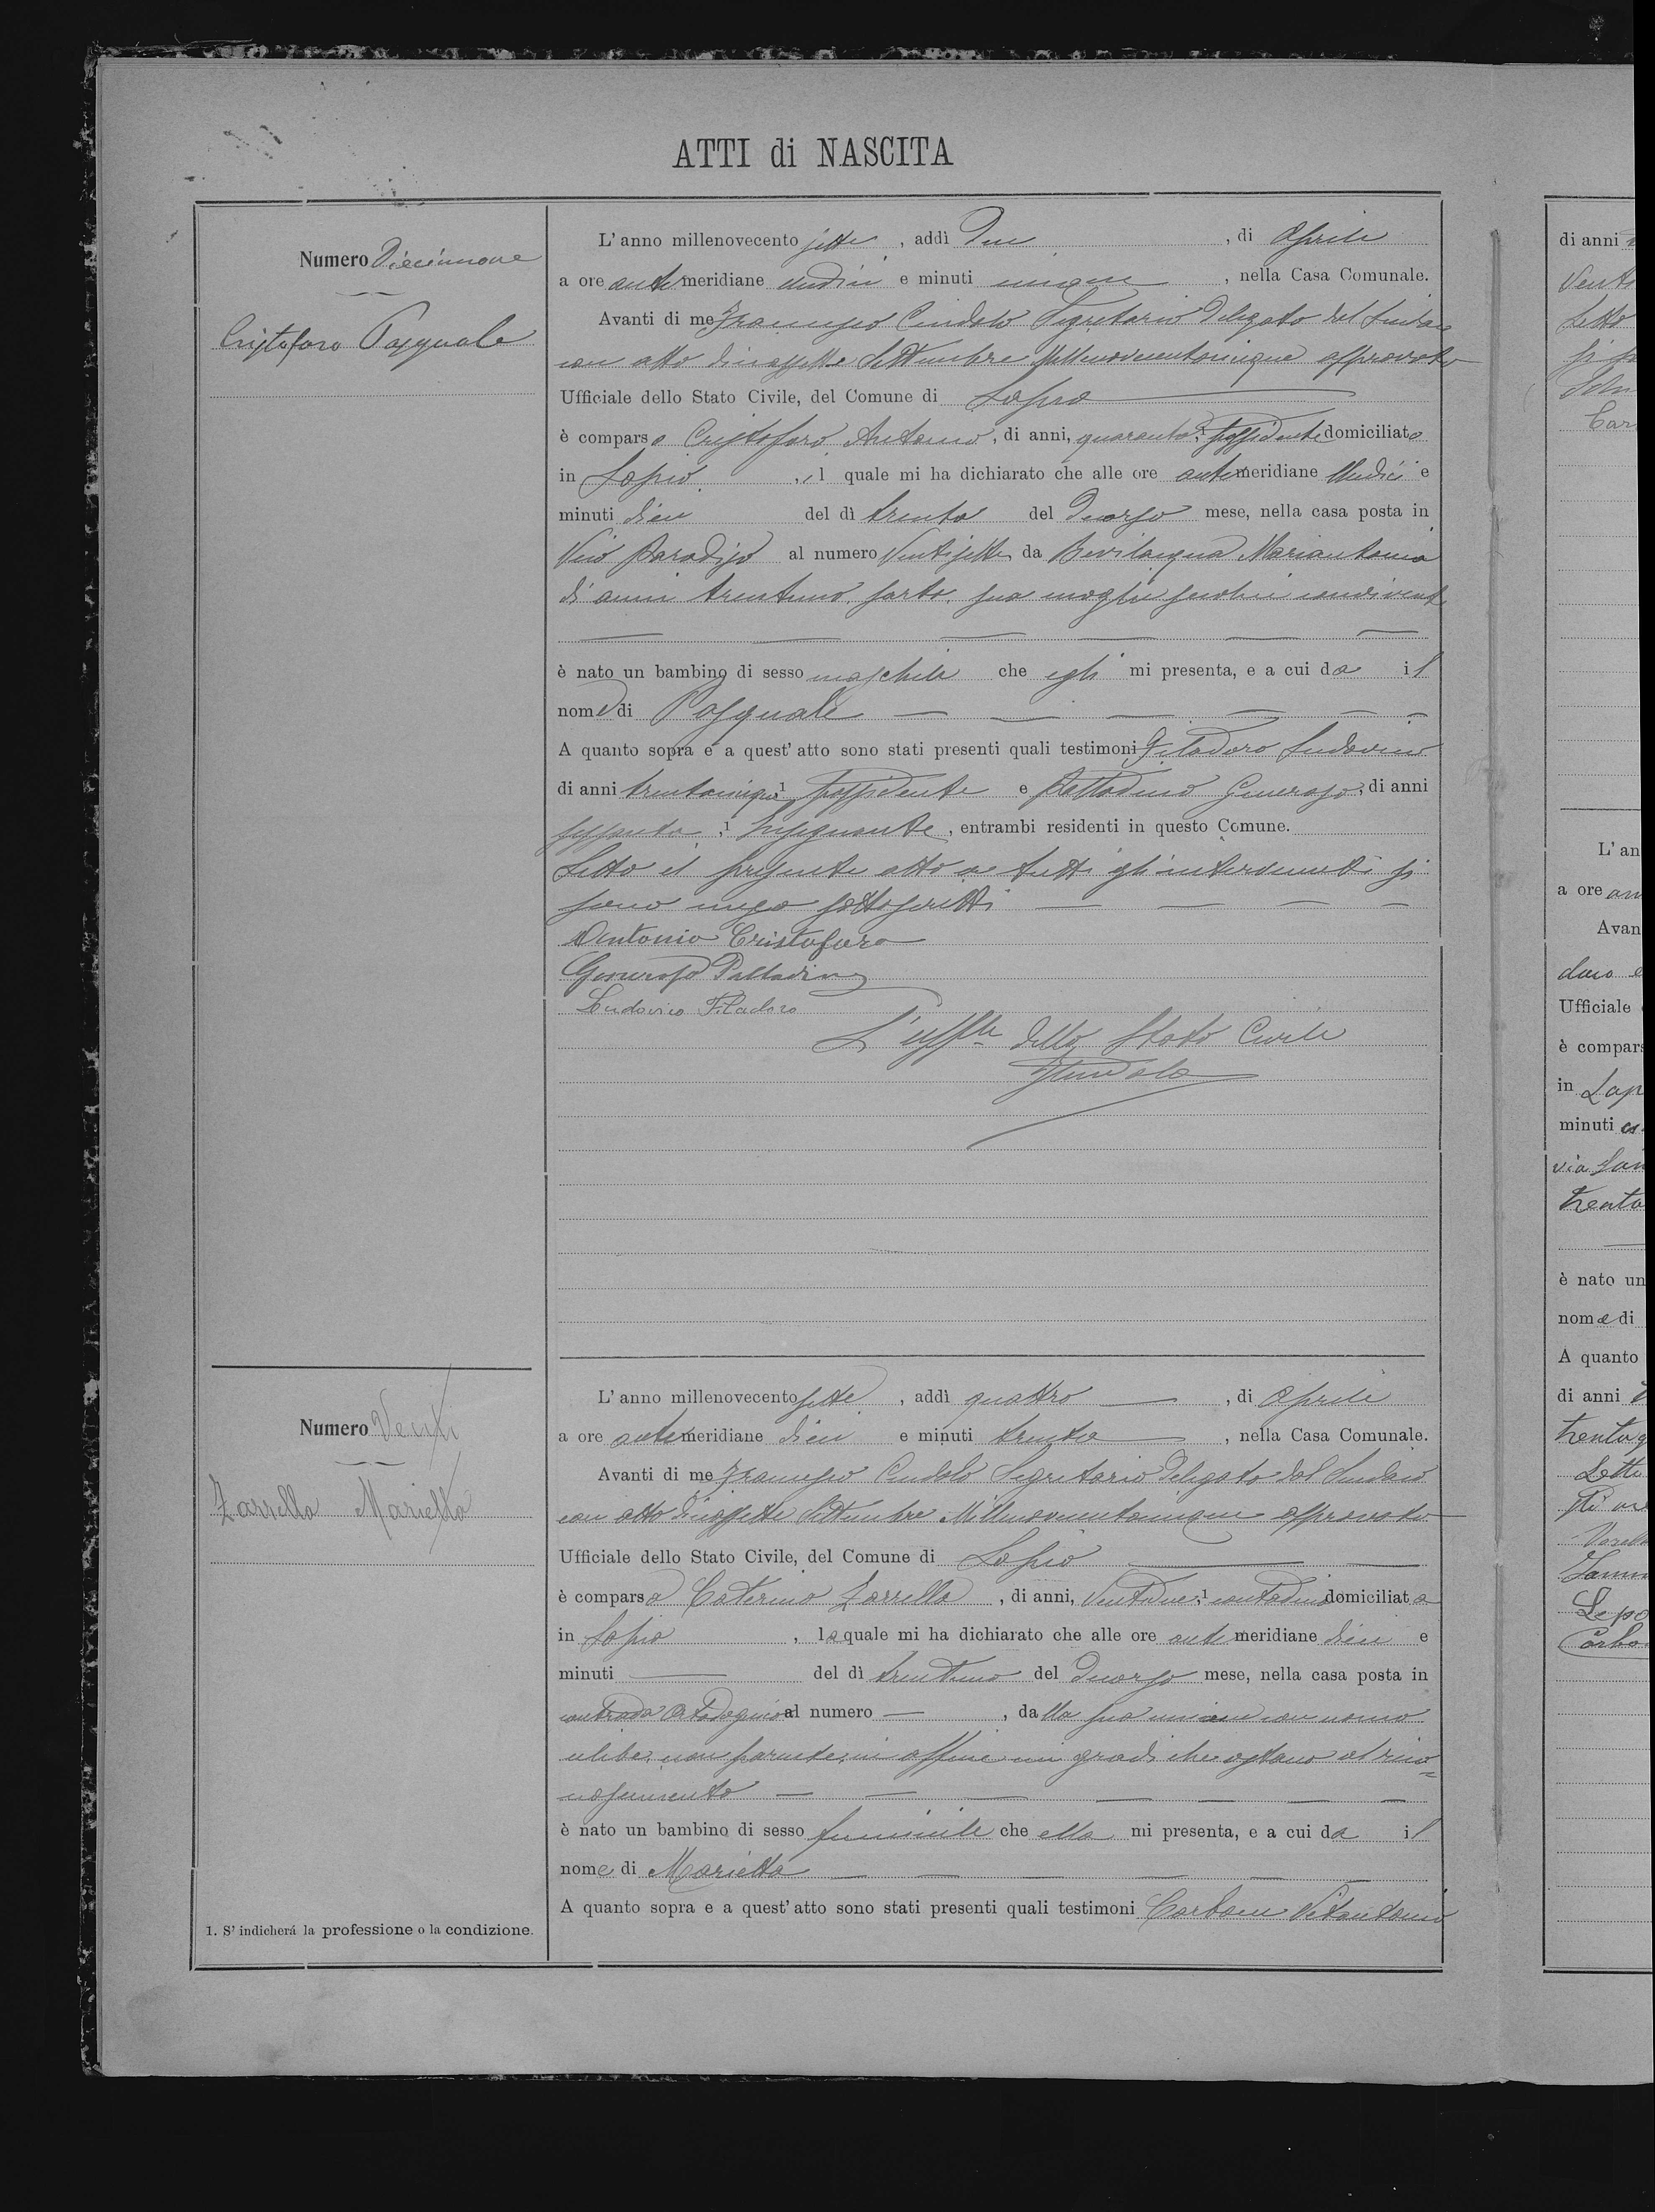 ATTI di NASCITA
Numero Diecinnove
Cristofaro Pasquale
L'anno millenovecento sette, addì Due, di Aprile
a ore antimeridiane undici e minuti cinque, nella Casa Comunale.
Avanti di me Francesco Cindolo Segretario Delegato dal Sindaco
con atto diciassette Settembre Millenovecentocinque approvato
Ufficiale dello Stato Civile, del Comune di Lapio
è comparso Cristofaro Antonio, di anni, quaranta, ¹ possidente domiciliato
in Lapio, il quale mi ha dichiarato che alle ore antimeridiane Undici e
minuti dieci del dì trenta del Decorso mese, nella casa posta in
Via Paradiso al numero Ventisette da Bevilacqua Mariantonia
di anni trentuno, sarta, sua moglie seco lui convivente
è nato un bambino di sesso maschile che egli mi presenta, e a cui da il
nome di Pasquale
A quanto sopra e a quest'atto sono stati presenti quali testimoni Filadoro Ludovico
di anni trentacinque ¹ possidente e Palladino Generoso, di anni
sessanta, ¹ Insegnante, entrambi residenti in questo Comune.
Letto il presente atto a tutti gl'intervenuti si
sono meco sottoscritti
Antonio Cristofaro
Generoso Palladino
Ludovico Filadoro
L'uff.le dello Stato Civile
FCindolo
Numero Venti
Zarrella Marietta
L'anno millenovecento sette, addì quattro, di Aprile
a ore antimeridiane dieci e minuti trenta, nella Casa Comunale.
Avanti di me Francesco Cindolo Segretario Delegato dal Sindaco
con atto diciassette Settembre Millenovecentocinque approvato
Ufficiale dello Stato Civile, del Comune di Lapio
è comparsa Caterina Zarrella, di anni, Ventidue, ¹ contadina domiciliata
in Lapio, la quale mi ha dichiarato che alle ore antimeridiane dieci e
minuti del dì trentuno del Decorso mese, nella casa posta in
contrada al numero, dalla sua unione con uomo
celibe, non parente, nè affine nei gradi che ostano al rico=
noscimento
è nato un bambino di sesso femminile che ella mi presenta, e a cui da il
nome di Marietta
A quanto sopra e a quest'atto sono stati presenti quali testimoni Carbone Vitantonio
1. S' indicherá la professione o la condizione.
di anni
Venti
Letto
Car
L'an
a ore an
Avan
Ufficiale
è compars
in Lap
minuti
via San
trenta
è nato un
nome di
A quanto
di anni
trentaq
Letto
Lepo
Carbo